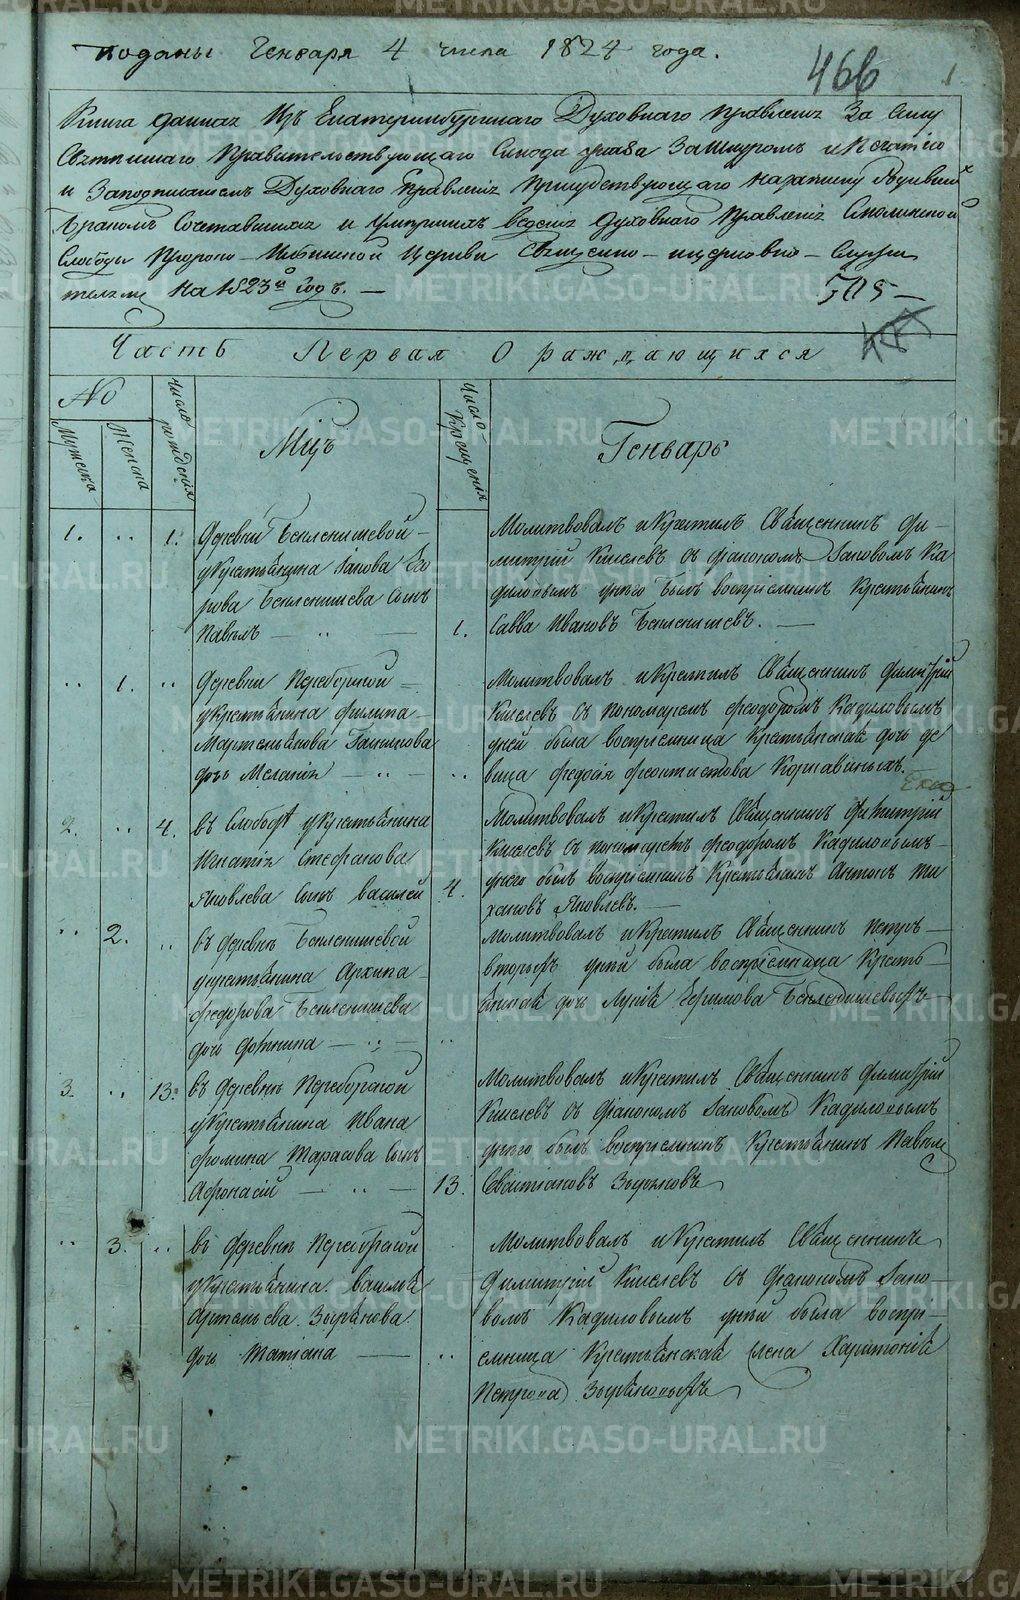 поданы Генваря 4 числа 1824 года.
466
1
Книга данная Изъ Екатеринбургскаго Духовнаго правления За силу
Святейшаго Правительствующаго Синода указа За шнуромъ и печатью
и Заподписаниемъ Духовнаго Правления Присудствующаго назаписку родившихся
Бракомъ Сочетавшихся и умершихъ ведения духовнаго правления
Слободы Пророко-Ильинской Церкви Священно-церковно-служи
телями на 1823й годъ. —
705 —
Часть Первая О раждающихся
№
Мужска
Женска
Число рождения
Мцъ
Число Крещения
Генварь
1. " 1.
Деревни Бекленищевой
у Крестьянина Иакова Его
рова Бекленищева Сынъ
Павелъ — " —
1.
Молитвовалъ и Крестилъ Священникъ Ди-
митрий Киселевъ съ диакономъ Иаковомъ Ка
диловымъ унего былъ восприемникъ Крестьянинъ
Савва Ивановъ Бекленищевъ. —
" 1. "
Деревни Переборной
у Крестьянина Филипа
Мартемьянова
дочь Мелания — " —
"
Молитвовалъ и Крестилъ Священникъ Димитрий
Киселевъ съ пономаремъ Феодоромъ Кадиловымъ
уней была восприемница Крестьянская дочь де
вица Федосия Феоктистова
2. " 4.
въ Слободе у Крестьянина
Игнатия Стефанова
Яковлева Сынъ Василей
4.
Молитвовалъ и Крестилъ Священникъ Димитрий
Киселевъ съ пономаремъ Феодоромъ Кадиловымъ
унего былъ восприемникъ Крестьянинъ Антонъ Ти
хановъ Яковлевъ. —
" 2. "
въ деревне Бекленищевой
укрестьянина Архипа
Федорова Бекленищева
дочь Фотинна — " —
"
Молитвовалъ и Крестилъ Священникъ Петръ
уней была восприемница Кресть-
янская дочь Бекленищевыхъ
3. " 13.
въ деревне Переборной
у Крестьянина Ивана
Фомина Тарасова Сынъ
Афонасий — " —
13.
Молитвовалъ и Крестилъ Священникъ Димитрий
Киселевъ съ диакономъ Иаковомъ Кадиловымъ
унего былъ восприемникъ Крестьянинъ Павелъ
Зыряновъ
" 3. "
въ деревне Переборной
у Крестьянина Василья
Артемьева Зырянова
дочь Татиана —
"
Молитвовалъ и Крестилъ Священникъ
Димитрий Киселевъ съ диакономъ Иако-
вомъ Кадиловымъ уней была воспри-
емница Крестьянская жена Харитония
Петрова Зыряновыхъ
METRIKI.GASO-URAL.RU